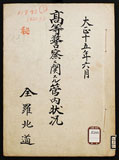 大正十五年六月
高等警察ニ関スル管内状況
全羅北道